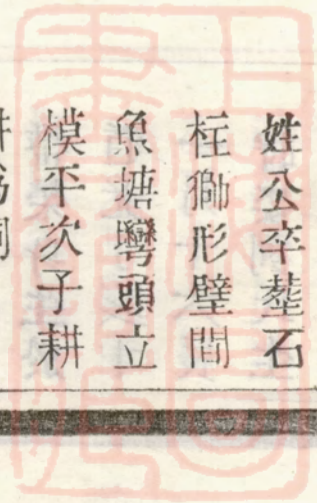 姓公卒塟石
柱獅形璧間
魚塘彎頭立
模平次子耕